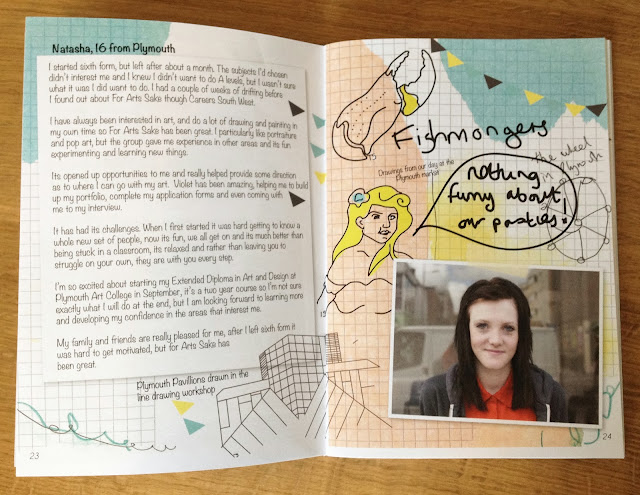 Natasha, 16 from Plymouth
I started sixth form, but left after about a month. The subjects I'd chosen
didn't interest me and I knew I didn't want to do A levels, but I wasn't sure
what it was I did want to do. I had a couple of weeks of drifting before
I found out about For Arts Sake though Careers South West.
I have always been interested in art, and do a lot of drawing and painting in
my own time so For Arts Sake has been great. I particularly like portraiture
and pop art, but the group gave me experience in other areas and its fun
experimenting and learning new things.
Its opened up opportunities to me and really helped provide some direction
as to where I can go with my art. Violet has been amazing, helping me to build
up my portfolio, complete my application forms and even coming with
me to my interview.
It has had its challenges. When I first started it was hard getting to know a
whole new set of people, now its fun, we all get on and its much better than
being stuck in a classroom, its relaxed and rather than leaving you to
struggle on your own, they are with you every step.
I'm so excited about starting my Extended Diploma in Art and Design at
Plymouth Art College in September, it's a two year course so I'm not sure
exactly what I will do at the end, but I am looking forward to learning more
and developing my confidence in the areas that interest me.
My family and friends are really pleased for me, after I left sixth form it
was hard to get motivated, but for Arts Sake has
been great.
Plymouth Pavillions drawn in the
line drawing workshop
23
Fishmongers
Drawings from our day at the
Plymouth market
the wheel
nothing
funny about
our pasties!
24